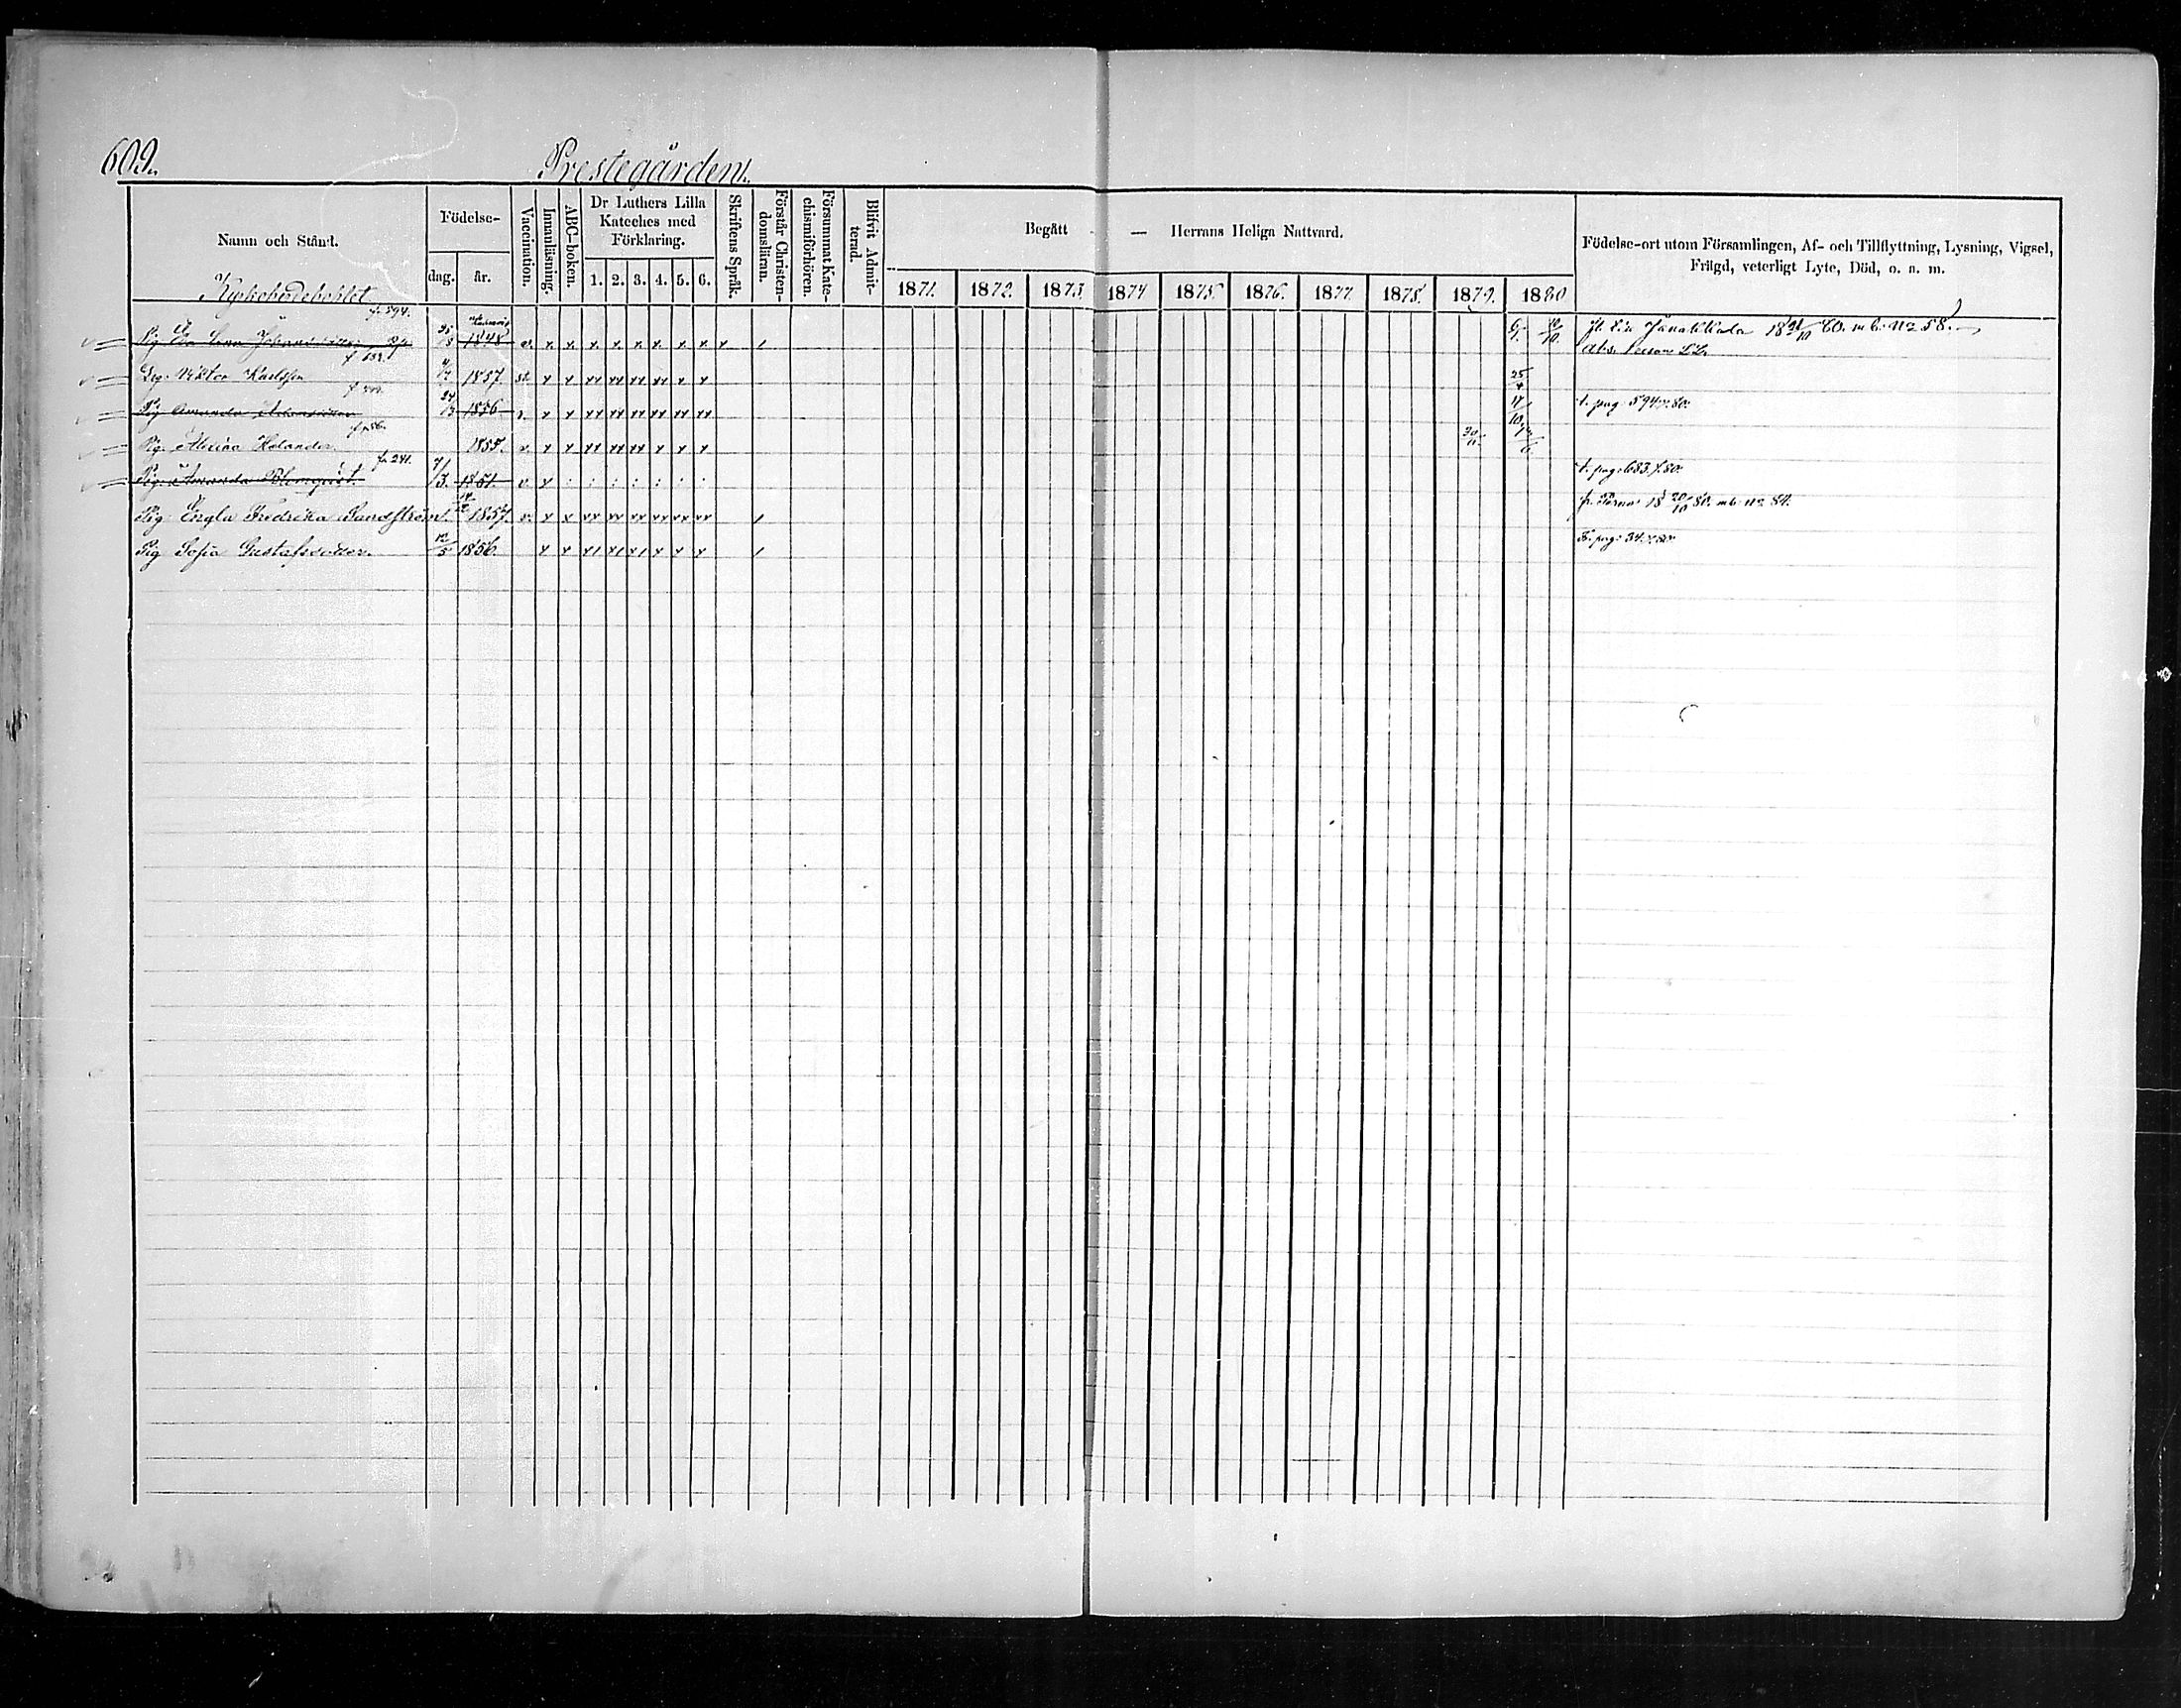 609.
Prestegården.
Namn och Stånd.
Födelse-
dag.
år.
Vaccination.
Innanläsning.
ABC-boken.
Dr Luthers Lilla
Kateches med
Förklaring.
1. 2. 3. 4. 5. 6.
Skriftens Språk.
Förstår Christen-
domsläran.
Försummat Kate-
chismiförhören.
Blifvit Admit-
terad.
Begått — Herrans Heliga Nattvard.
1871. 1872. 1873. 1874 1875. 1876. 1877. 1878. 1879. 1880
Födelse-ort utom Församlingen, Af- och Tillflyttning, Lysning, Vigsel,
Frägd, veterligt Lyte, Död, o. n. m.
fr 594.
Pig. Eva Lena 25/3 1848 v. x x x x x x x x x 10/10. Janakkala 18 60. mb. no 58.
Viktor Karlsson 1857 x x xx xx xx xx x x 25/4
Pig Amanda 24 1856 v. x x xx xx xx xx xx xx t. pag. 594. 80.
Pig. Alexina Helander 1855. v. x x xx xx xx x x x
fr. 241.
Pig. Amanda Blomqvist. 7/3. 1851. v x : : : : : : : t. pag. 683. 80.
Pig Engla Fredrika Sandström. 1857. v. x x xx xx xx xx xx xx fr. Perno 18 20/10 80. mb. no 84.
Pig Sofia Gustafsdotter. 12/5 1856. x x x1 x1 x1 x x x pag. 34.